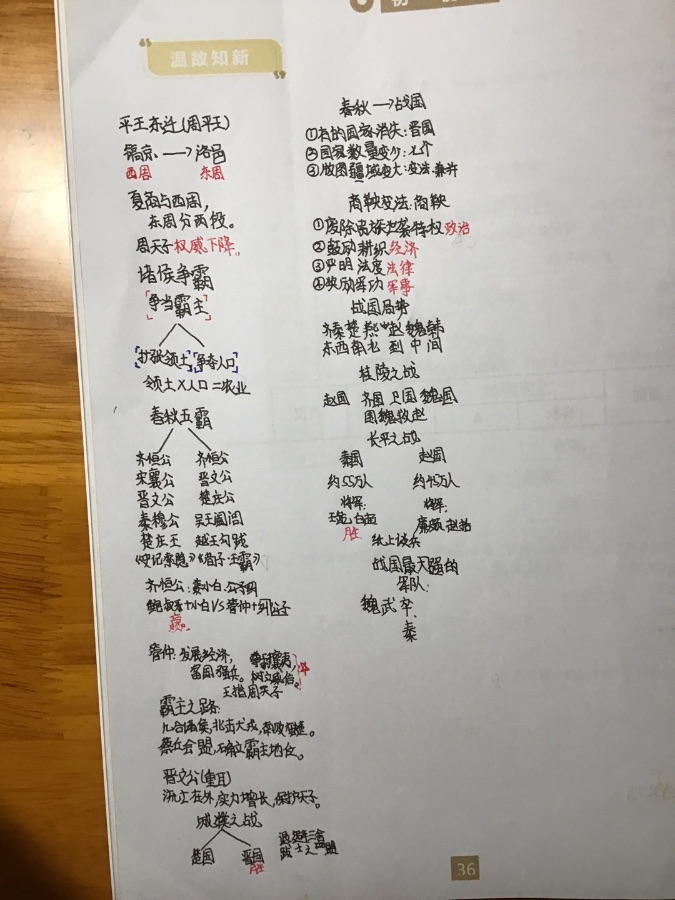 温故知新
平王东迁(周平王)
镐京 → 洛邑
西周 东周
夏商与西周,
东周分两段。
周天子权威下降。
诸侯争霸
争当霸主
扩张领土 争夺人口
领土×人口=农业
春秋五霸
齐恒公 齐恒公
宋襄公 晋文公
晋文公 楚庄公
秦穆公 吴王阖闾
楚庄王 越王勾践
《史记索隐》《荀子·王霸》
齐恒公:
鲍叔牙+小白VS管仲+纠公子
赢
管仲:发展经济,
富国强兵。树立威信。
王挡周天子
霸主之路:
九合诸侯,北击犬戎,南
葵丘会盟,确立霸主地位。
晋文公(重耳)
流亡在外,实力增长,保护天子。
城濮之战
楚国 晋国
胜
退避三舍
践土之盟
春秋→战国
①有的国家消失:晋国
②国家数量变少:七个
③版图疆域变大:变法.兼并
商鞅变法:商鞅
①废除贵族世袭特权 政治
②鼓励耕织 经济
③严明法度 法律
④奖励军功 军事
战国局势
齐秦楚燕 赵魏韩
东西南北 到中间
桂陵之战
赵国 齐国 卫国 魏国
围魏救赵
长平之战
秦国 赵国
约55万人 约45万人
将军: 将军:
王龁,白起 廉颇,赵括
胜
纸上谈兵
战国最强的
军队:
魏武卒.
秦
36